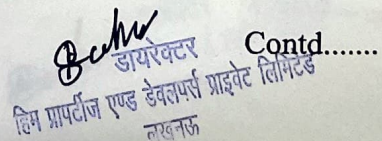 डायरेक्टर Contd.......
हिम प्रापर्टीज एण्ड डेवलपर्स प्राइवेट लिमिटेड
लखनऊ